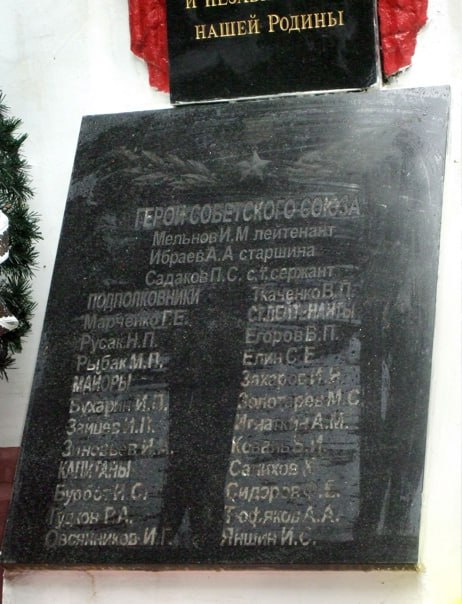 НАШЕЙ РОДИНЫ
ГЕРОИ СОВЕТСКОГО СОЮЗА
Мельнов И.М лейтенант
Ибраев А.А старшина
Садаков П.С. ст.сержант
ПОДПОЛКОВНИКИ
Марченко Г.Е.
Русак Н.П.
Рыбак М.П.
МАЙОРЫ
Бухарин И.П.
Зайцев И.П.
Зиновьев И.А.
КАПИТАНЫ
Буров И.С.
Гудков Р.А.
Овсянников И.Г.
Ткаченко В.П.
СТ.ЛЕЙТ-НАНТЫ
Егоров В.П.
Елин С.Е.
Захаров И.Я.
Золотарев М.С.
Игнаткин А.М.
Коваль В.И.
Салихов Х
Сидоров Е.
Тюфяков А.А.
Яншин И.С.